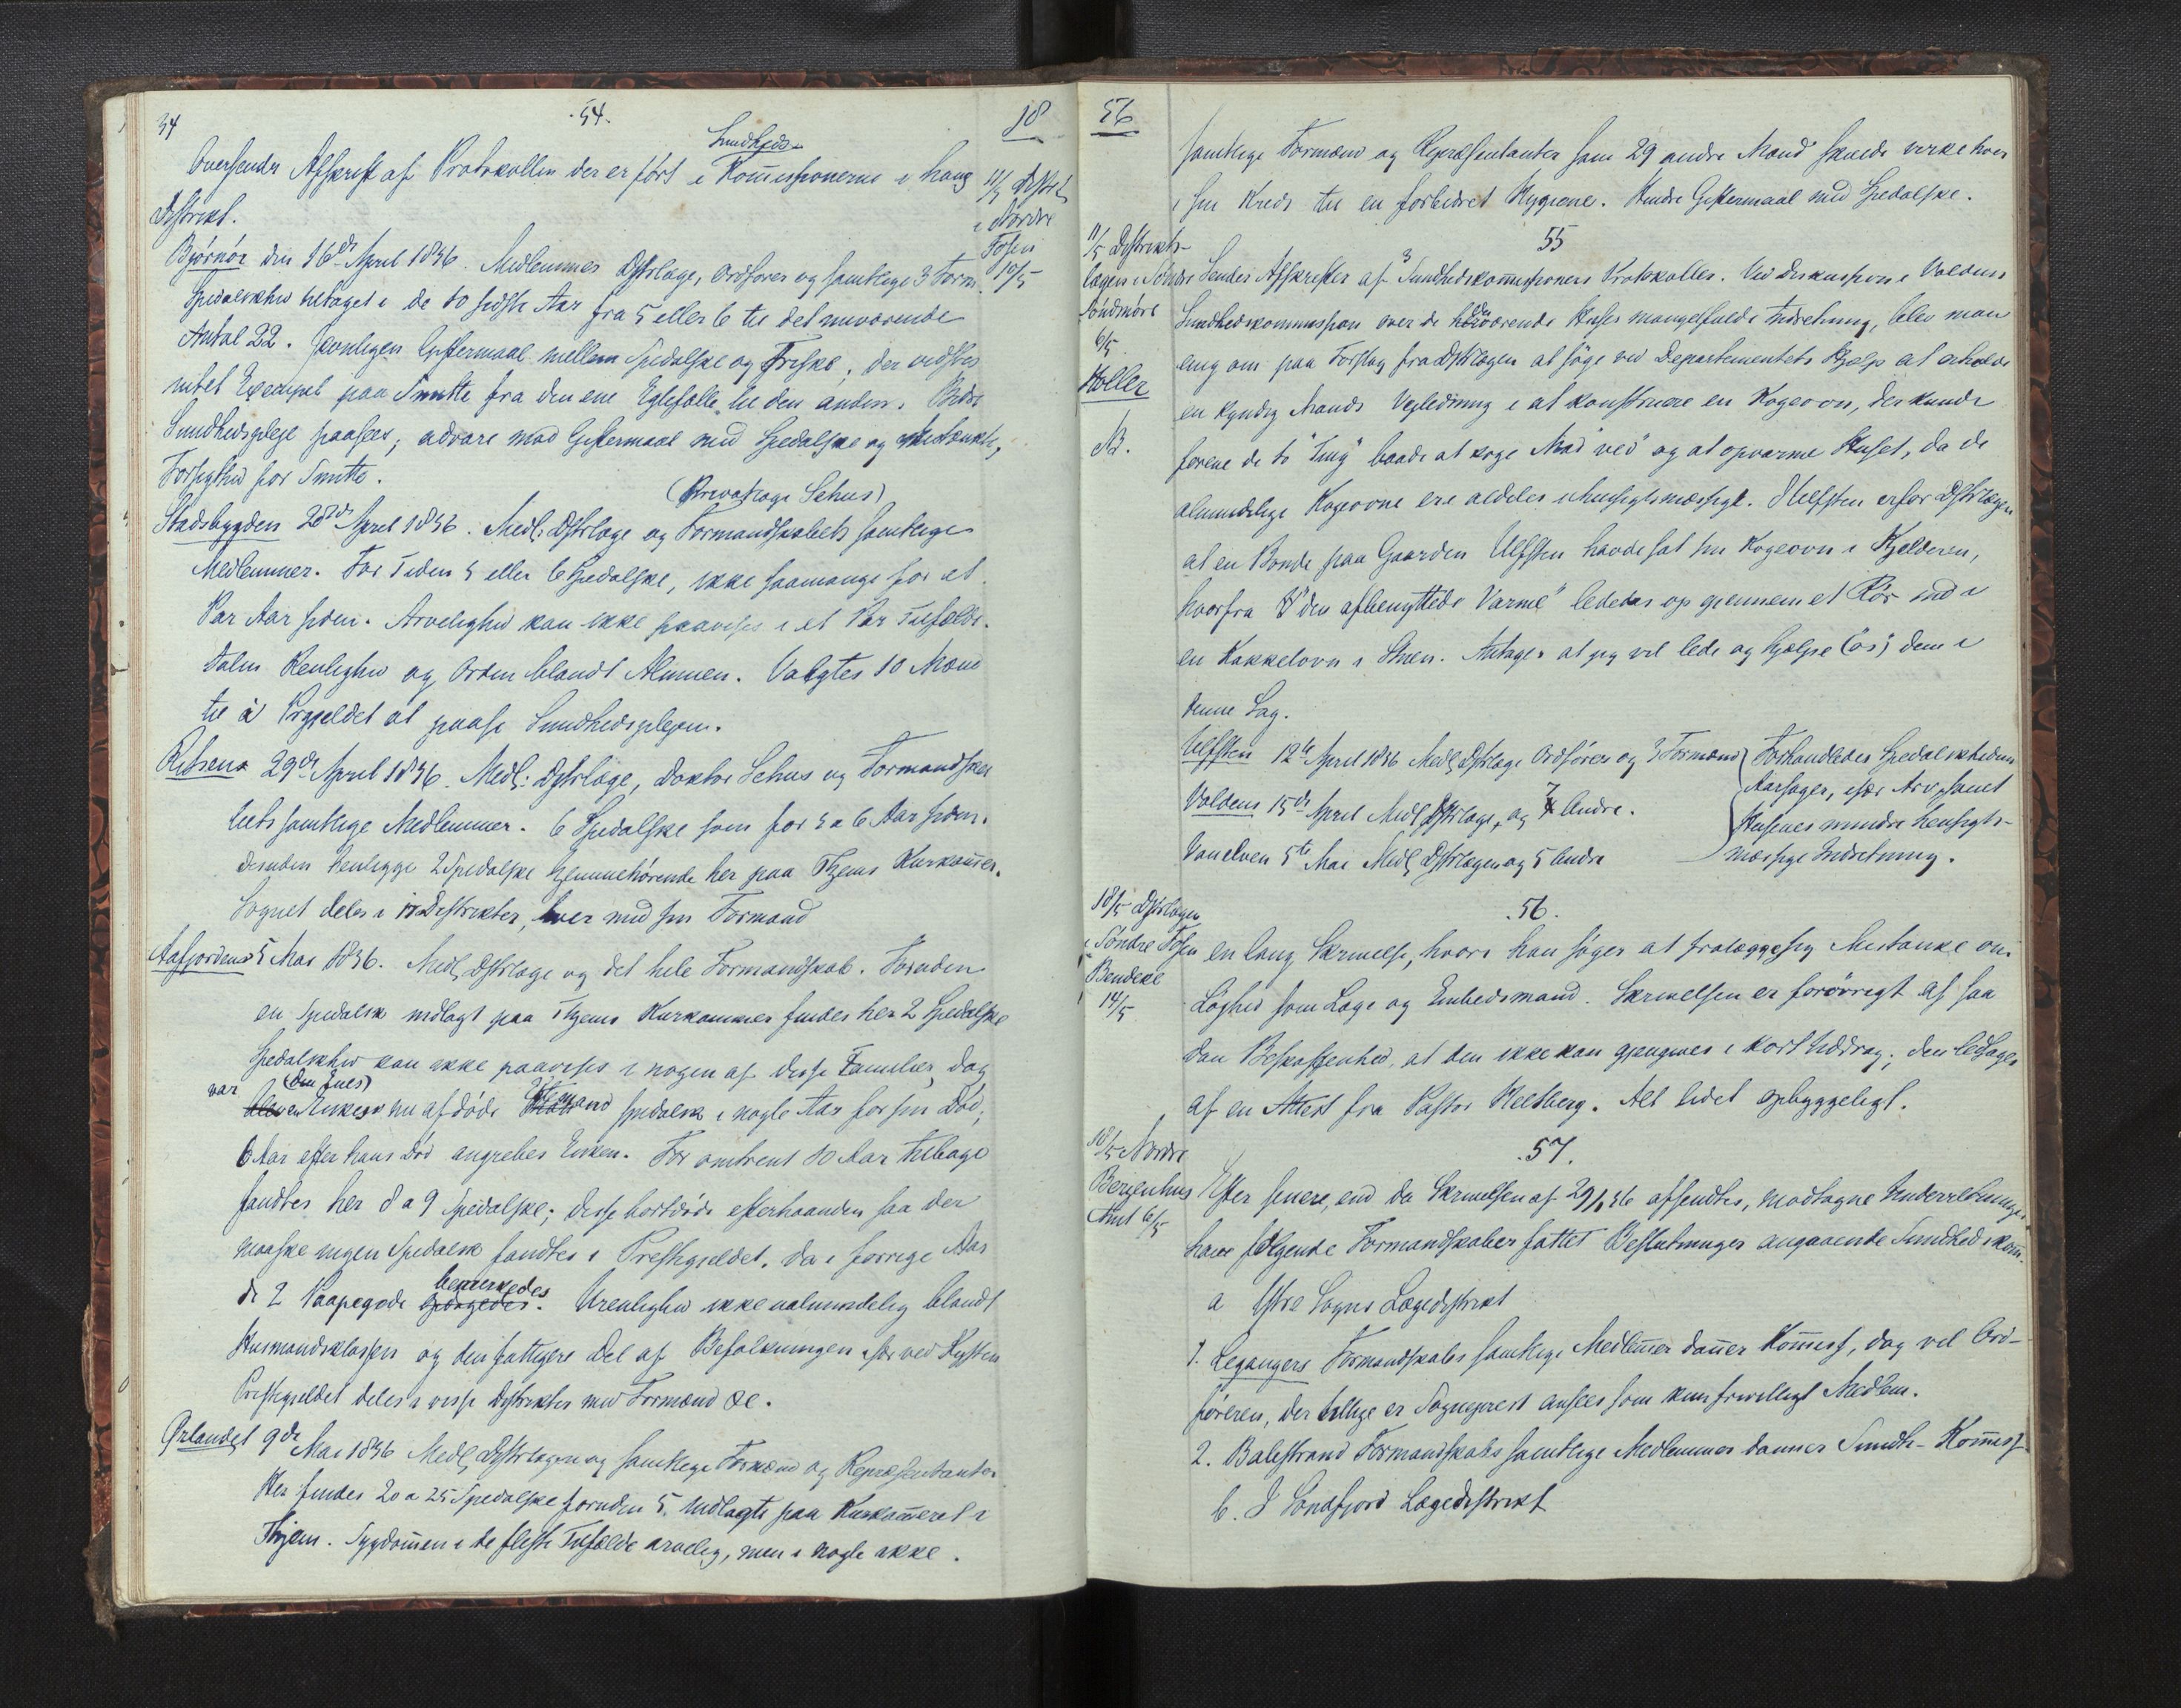 34
.54.
18
Sundheds-
Oversender Afskrift af Protokollen der er ført i Kommissionerne i hans
Distrikt.
11/5 Distrl.
i Nordre
Fosen
10/5
Bjørnør den 16de April 1856. Medlemmer Dstrlæge, Ordfører og samtlige 3 Form.
Spedalskhed tiltaget i de 10 sidste Aar fra 5 eller 6 til det nuværende
Antal 22. Jevnligen Giftermaal mellem Spedalske og Friske; der vidstes
intet Exempel paa Smitte fra den ene Egtefælle til den anden. Bedre
Sundhedspleje paasees; advare mod Giftermaal med Spedalske og
Forsigthed for Smitte.
(Privatlæge Sehus)
Stadsbygden 28de April 1856. Medl: Dstrlæge og Formandskabets samtlige
Medlemmer. For Tiden 5 eller 6 Spedalske, ikke saamange for et
Par Aar siden. Arvelighed kan ikke paavises i et Par Tilfælde.
Renlighed og Orden blandt Almuen. Valgtes 10 Mænd
til i Prgjeldet at paase Sundhedsplejen.
Rissens 29de April 1856. Medl: Dstrlæge, Doktor Sehus og Formandska
bets samtlige Medlemmer. 6 Spedalske som for 5 a 6 Aar siden.
Desuden henligge 2 Spedalske hjemmehørende her paa Thjems Kurkammer.
Sognet deles i Distrikter, hver med sin Formand
Aafjordens 5 Mai 1856. Medl. Dstrlæge og det hele Formandskab. Foruden
en Spedalsk indlagt paa Thjems Kurkammer findes her 2 Spedalske
Spedalskhed kan ikke paavises i nogen af disse Familier, dog
var (den Enes)
Enkes nu afdøde Mand spedalsk i nogle Aar før sin Død;
6 Aar efter hans Død angrebes Enken. For omtrent 10 Aar tilbage
fandtes her 8 a 9 Spedalske; disse bortdøde efterhaanden saa der
maaske ingen Spedalsk fandtes i Prestegjeldet, da i forrige Aar
bemerkedes
de 2 Paapegede. Urenlighed ikke ualmindelig blandt
Husmandsklassen og den fattigere Del af Befolkningen især ved Kysten
Prestegjeldet deles i visse Distrikter med Formænd &c.
Ørlandet 9de Mai 1856 Medl. Dstrlægen og samtlige Formænd og Repræsentanter
Her findes 20 a 25 Spedalske foruden 5 indlagte paa Kurkammeret i
Thjem. Sygdommen i de fleste Tilfælde arvelig, men i nogle ikke.
56
samtlige Formænd og Repræsentanter samt 29 andre Mænd skulde virke hver
i sin Kreds til en forbedret Hygiene. Hindre Giftermaal med Spedalske.
55
11/5 Distrikts-
lægen i Søndre
Søndmøre
6/5
Holler
NB.
Sender Afskrifter af 3 Sundhedskommissioners Protokoller. Ved Diskussion i Voldens
Sundhedskommission over de herværende Huses mangelfulde Indretning, blev man
enig om paa Forslag fra Dstrlægen at søge ved Departementets Hjelp at erholde
en kyndig Mands Vejledning i at konstruere en Kogeovn, der kunde
forene de to "Ting" baade at koge Mad "ved" og at opvarme Huset, da de
almindelige Kogeovne ere aldeles uhensigtsmæssige. I Ulfsten erfor Dstrlægen
at en Bonde paa Gaarden Ulfsten havde sat sin Kogeovn i Kjelderen,
hvorfra "den afbenyttede Varme" lededes op gjennem et Rør ind i
en Kakkelovn i Stuen. Antager at jeg vil lede og hjelpe (os) dem i
denne Sag.
Ulfsten 12te April 1856 Medl. Dstrlæge Ordfører og 3 Formænd
Voldens 15de April Medl. Dstrlæge, og 7 Andre.
Vanelven 5te Mai Medl. Dstrlægen og 5 Andre
Forhandledes Spedalskhedens
Aarsager, især Arv, samt
Husenes mindre hensigts-
mæssige Indretning.
.56.
18/5 Dstrlægen
i Søndre Fosen
Bendeke
14/5
en lang Skrivelse, hvori han søger at fralægge sig Mistanke om
Løshed som Læge og Embedsmand. Skrivelsen er forøvrigt af saa
dan Beskaffenhed, at den ikke kan gjengives i kort Uddrag; den ledsages
af en Attest fra Pastor Heltberg. Alt lidet opbyggeligt.
.57.
18/5 Nordre
Bergenhus
Amt 6/5
Efter senere, end da Skrivelsen af 29/ 56 afsendtes, modtagne Underretninger
have følgende Formandskaber fattet Beslutninger angaaende Sundhedskom̄.
a Ytre Sogns Lægedistrikt
1. Leganger Formandskabs samtlige Medlem̄er dan̄er Kom̄iss, dog vil Ord-
føreren, der tillige er Sogneprest ansees som kun frivilligt Medlem.
2. Balestrand Formandskabs samtlige Medlemmer danner Sundh-Kom̄iss
b. I Søndfjord Lægedistrikt